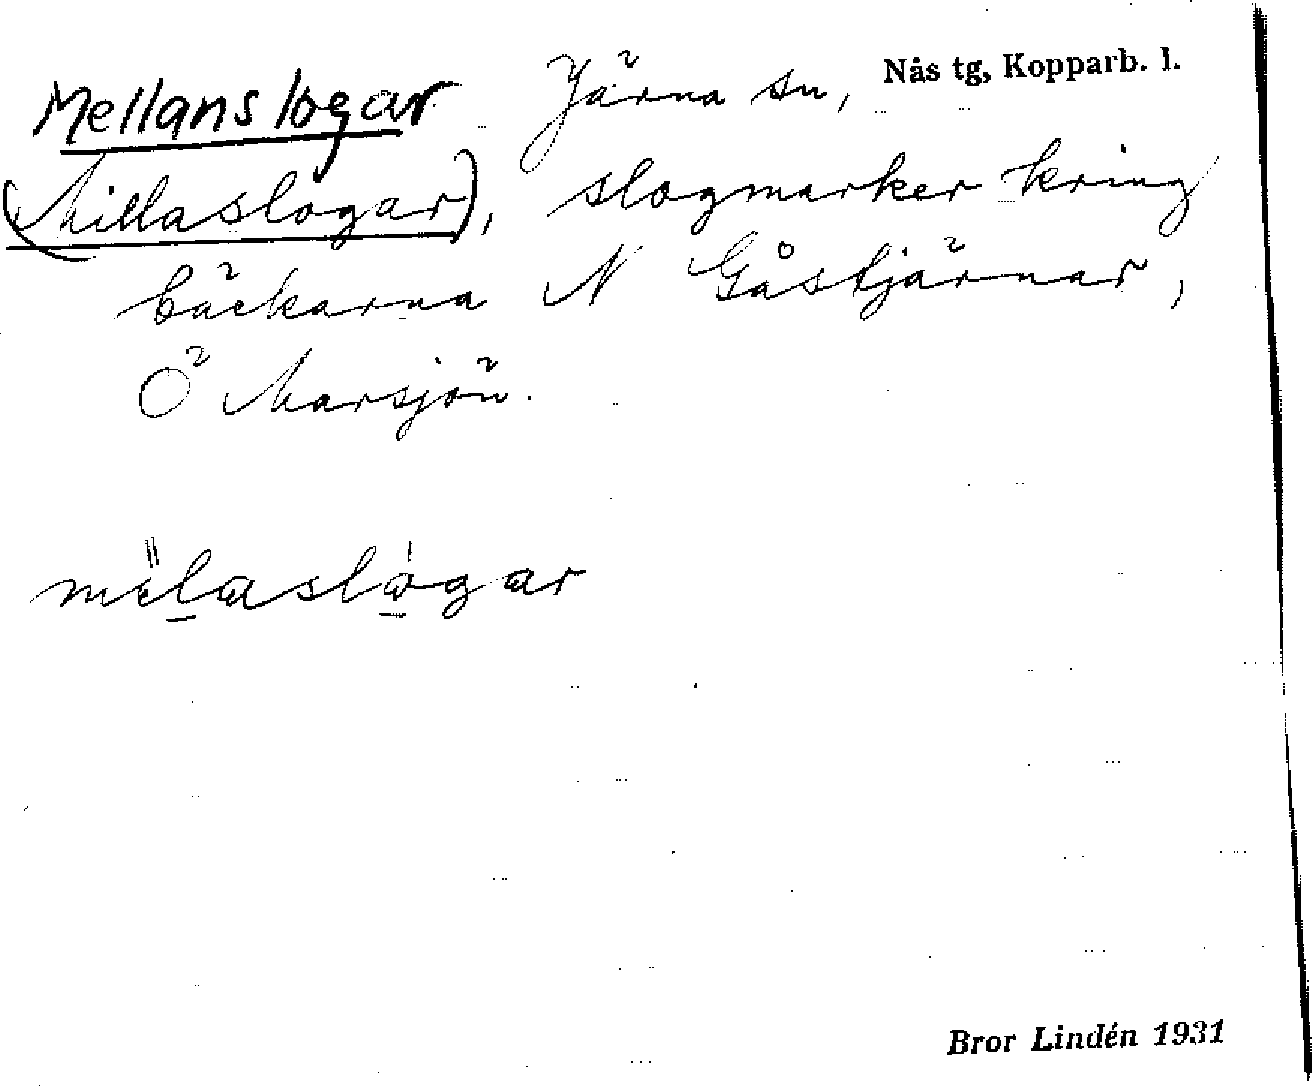 Mellanslogar Järna sn, Nås tg, Kopparb. l.
(Millaslogar), slogmarker kring
bäckarna N Gåstjärnar,
Ö Marsjön.
mılaslogar
Bror Lindén 1931